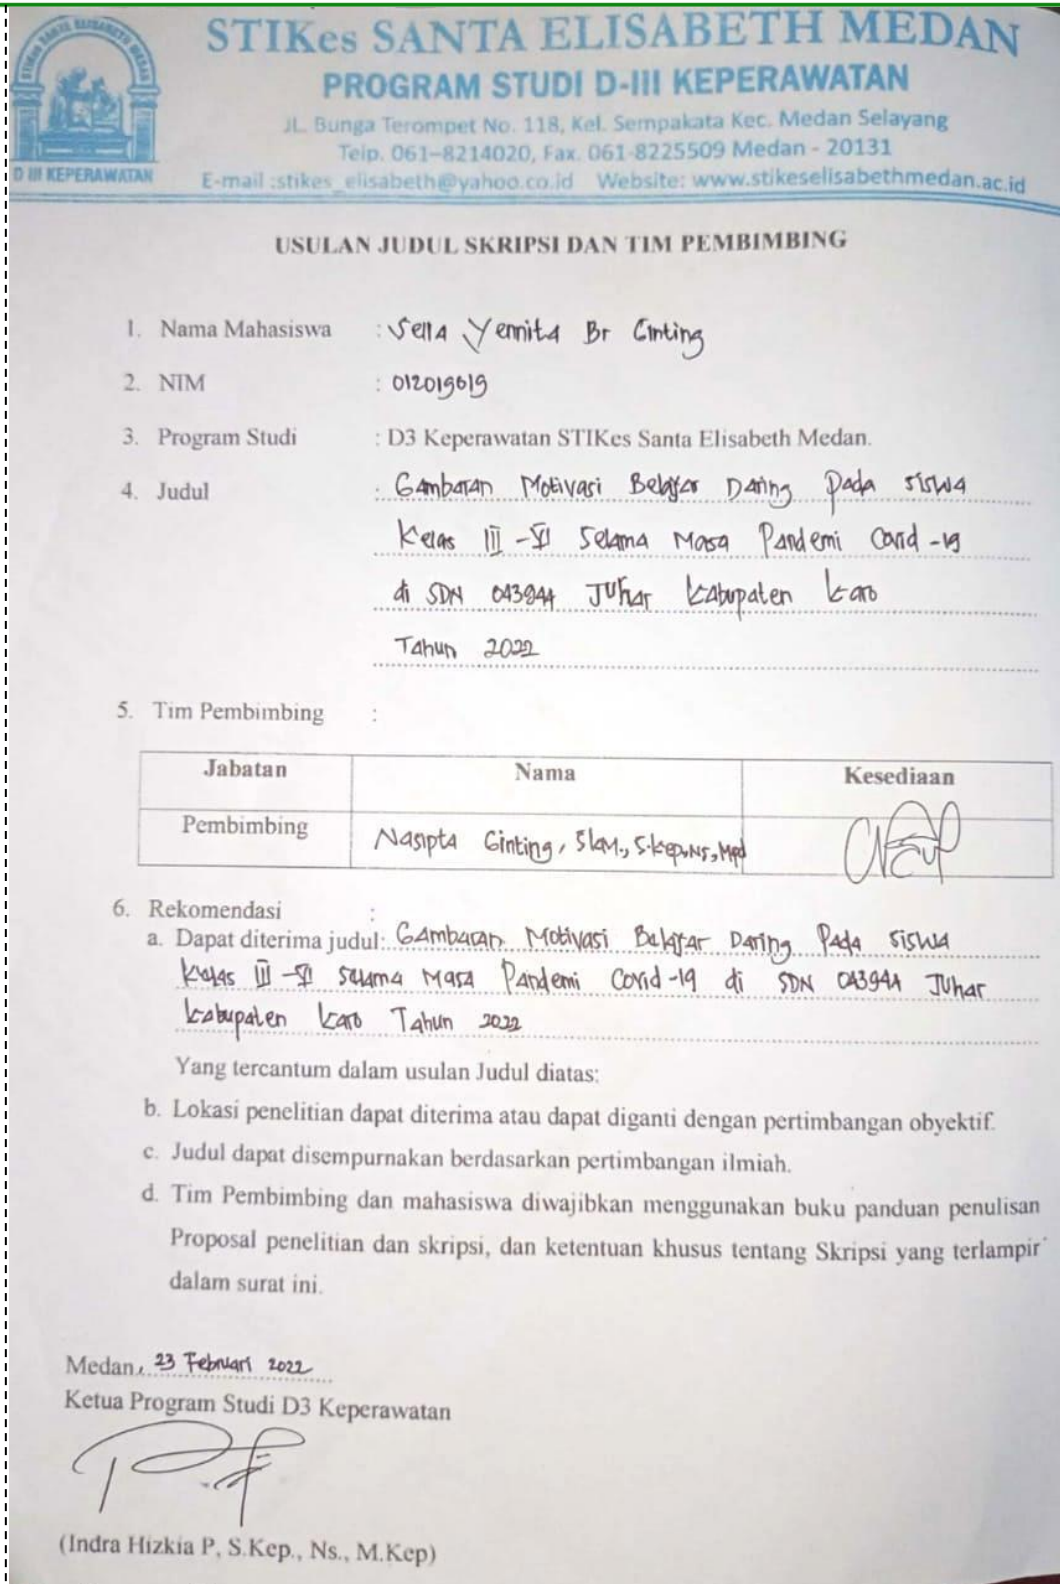 STIKes SANTA ELISABETH MEDAN
PROGRAM STUDI D-III KEPERAWATAN
JL. Bunga Terompet No. 118, Kel. Sempakata Kec. Medan Selayang
Telp. 061-8214020, Fax. 061-8225509 Medan - 20131
D III KEPERAWATAN
E-mail :stikes_elisabeth@yahoo.co.id Website: www.stikeselisabethmedan.ac.id
USULAN JUDUL SKRIPSI DAN TIM PEMBIMBING
1. Nama Mahasiswa : Sella Yennita Br Ginting
2. NIM : 012019019
3. Program Studi : D3 Keperawatan STIKes Santa Elisabeth Medan.
4. Judul : Gambaran Motivasi Belajar Daring Pada siswa
Kelas III - VI Selama Masa Pandemi Covid -19
di SDN 043944 Juhar Kabupaten Karo
Tahun 2022
5. Tim Pembimbing :
Jabatan Nama Kesediaan
Pembimbing Nasipta Ginting, SKM., S.Kep., Ns., Mpd
6. Rekomendasi :
a. Dapat diterima judul: Gambaran Motivasi Belajar Daring Pada siswa
Kelas III - VI Selama Masa Pandemi Covid -19 di SDN 043944 Juhar
Kabupaten Karo Tahun 2022
Yang tercantum dalam usulan Judul diatas;
b. Lokasi penelitian dapat diterima atau dapat diganti dengan pertimbangan obyektif.
c. Judul dapat disempurnakan berdasarkan pertimbangan ilmiah.
d. Tim Pembimbing dan mahasiswa diwajibkan menggunakan buku panduan penulisan
Proposal penelitian dan skripsi, dan ketentuan khusus tentang Skripsi yang terlampir
dalam surat ini.
Medan, 23 Februari 2022
Ketua Program Studi D3 Keperawatan
(Indra Hizkia P, S.Kep., Ns., M.Kep)